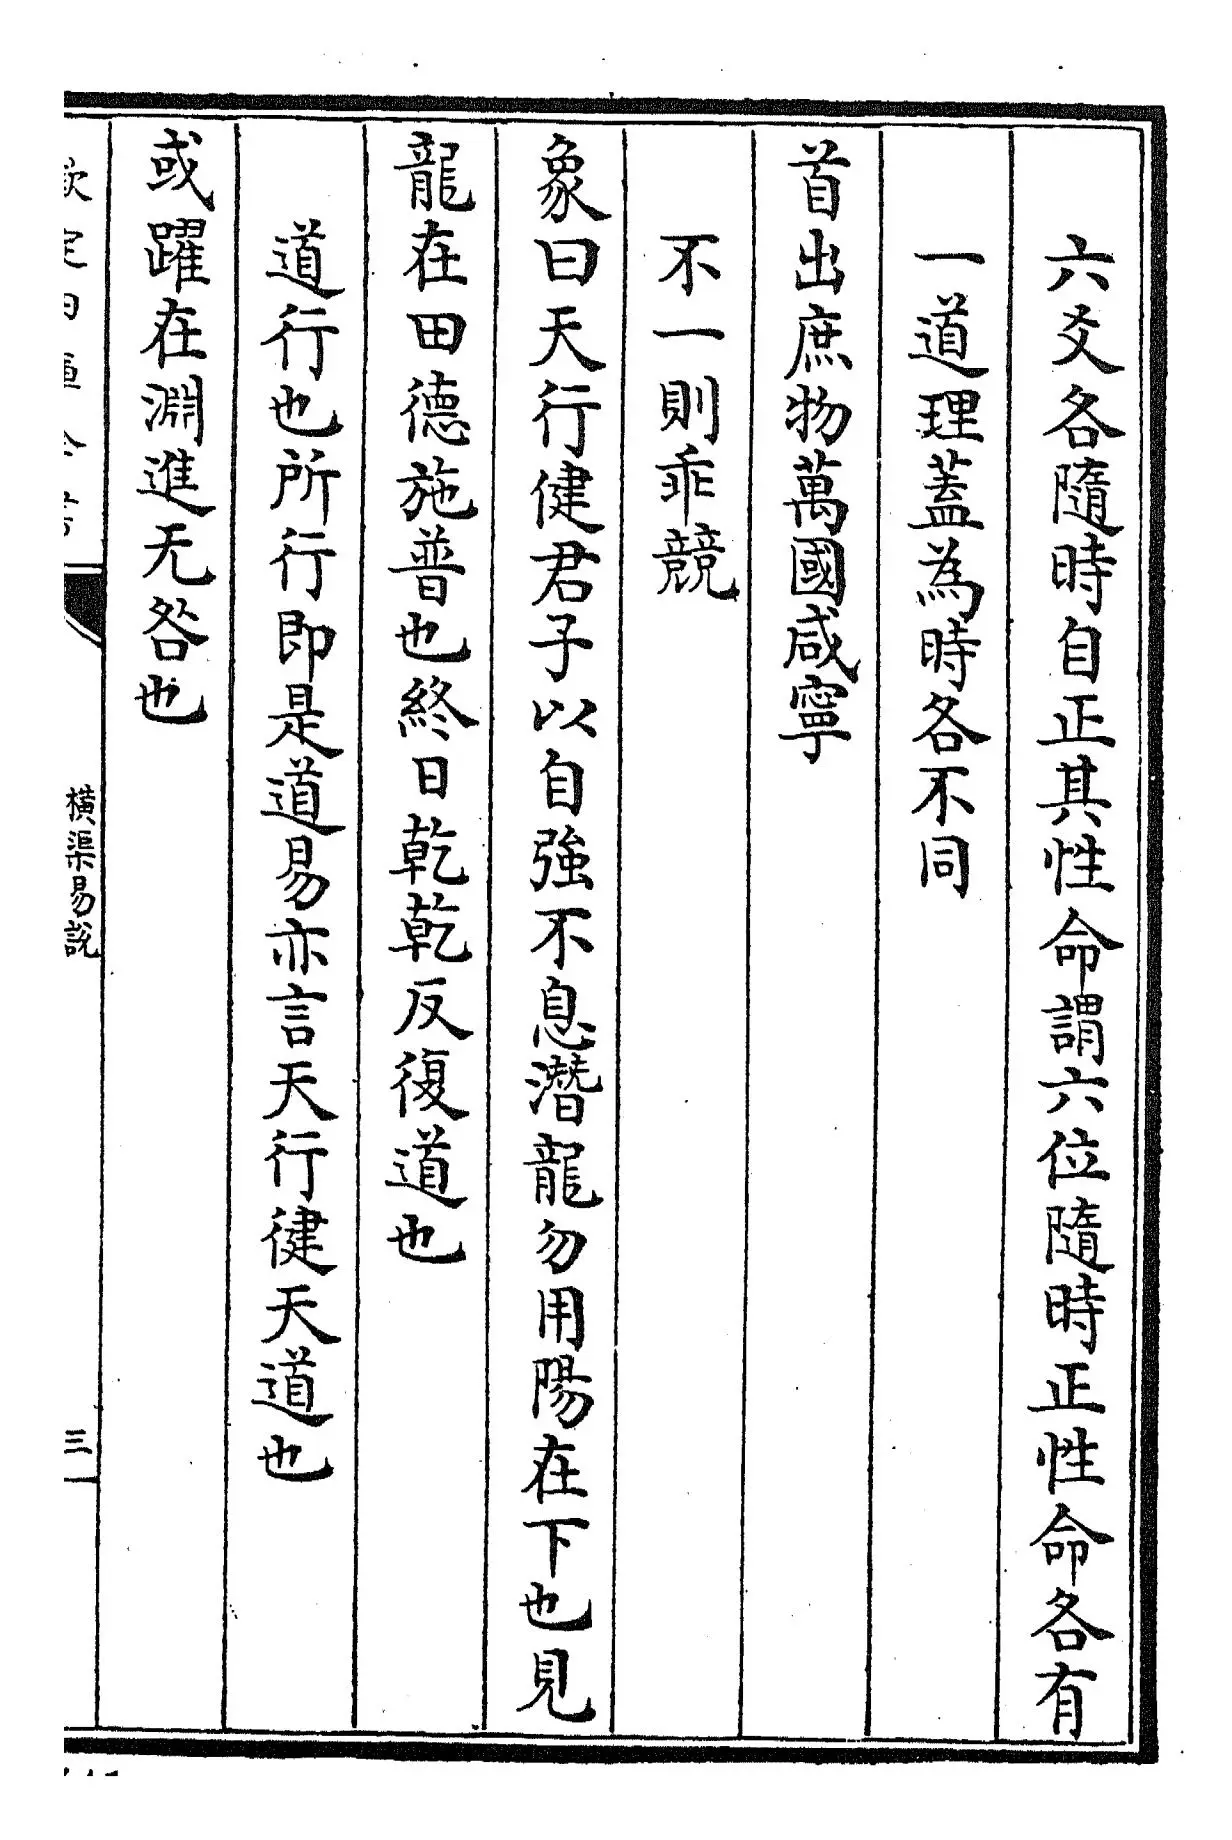 六爻各隨時自正其性命謂六位隨時正性命各有
一道理蓋為時各不同
首出庶物萬國咸寧
不一則乖競
象曰天行健君子以自強不息潛龍勿用陽在下也見
龍在田德施普也終日乾乾反復道也
道行也所行即是道易亦言天行徤天道也
或躍在淵進无咎也
橫渠易說
三